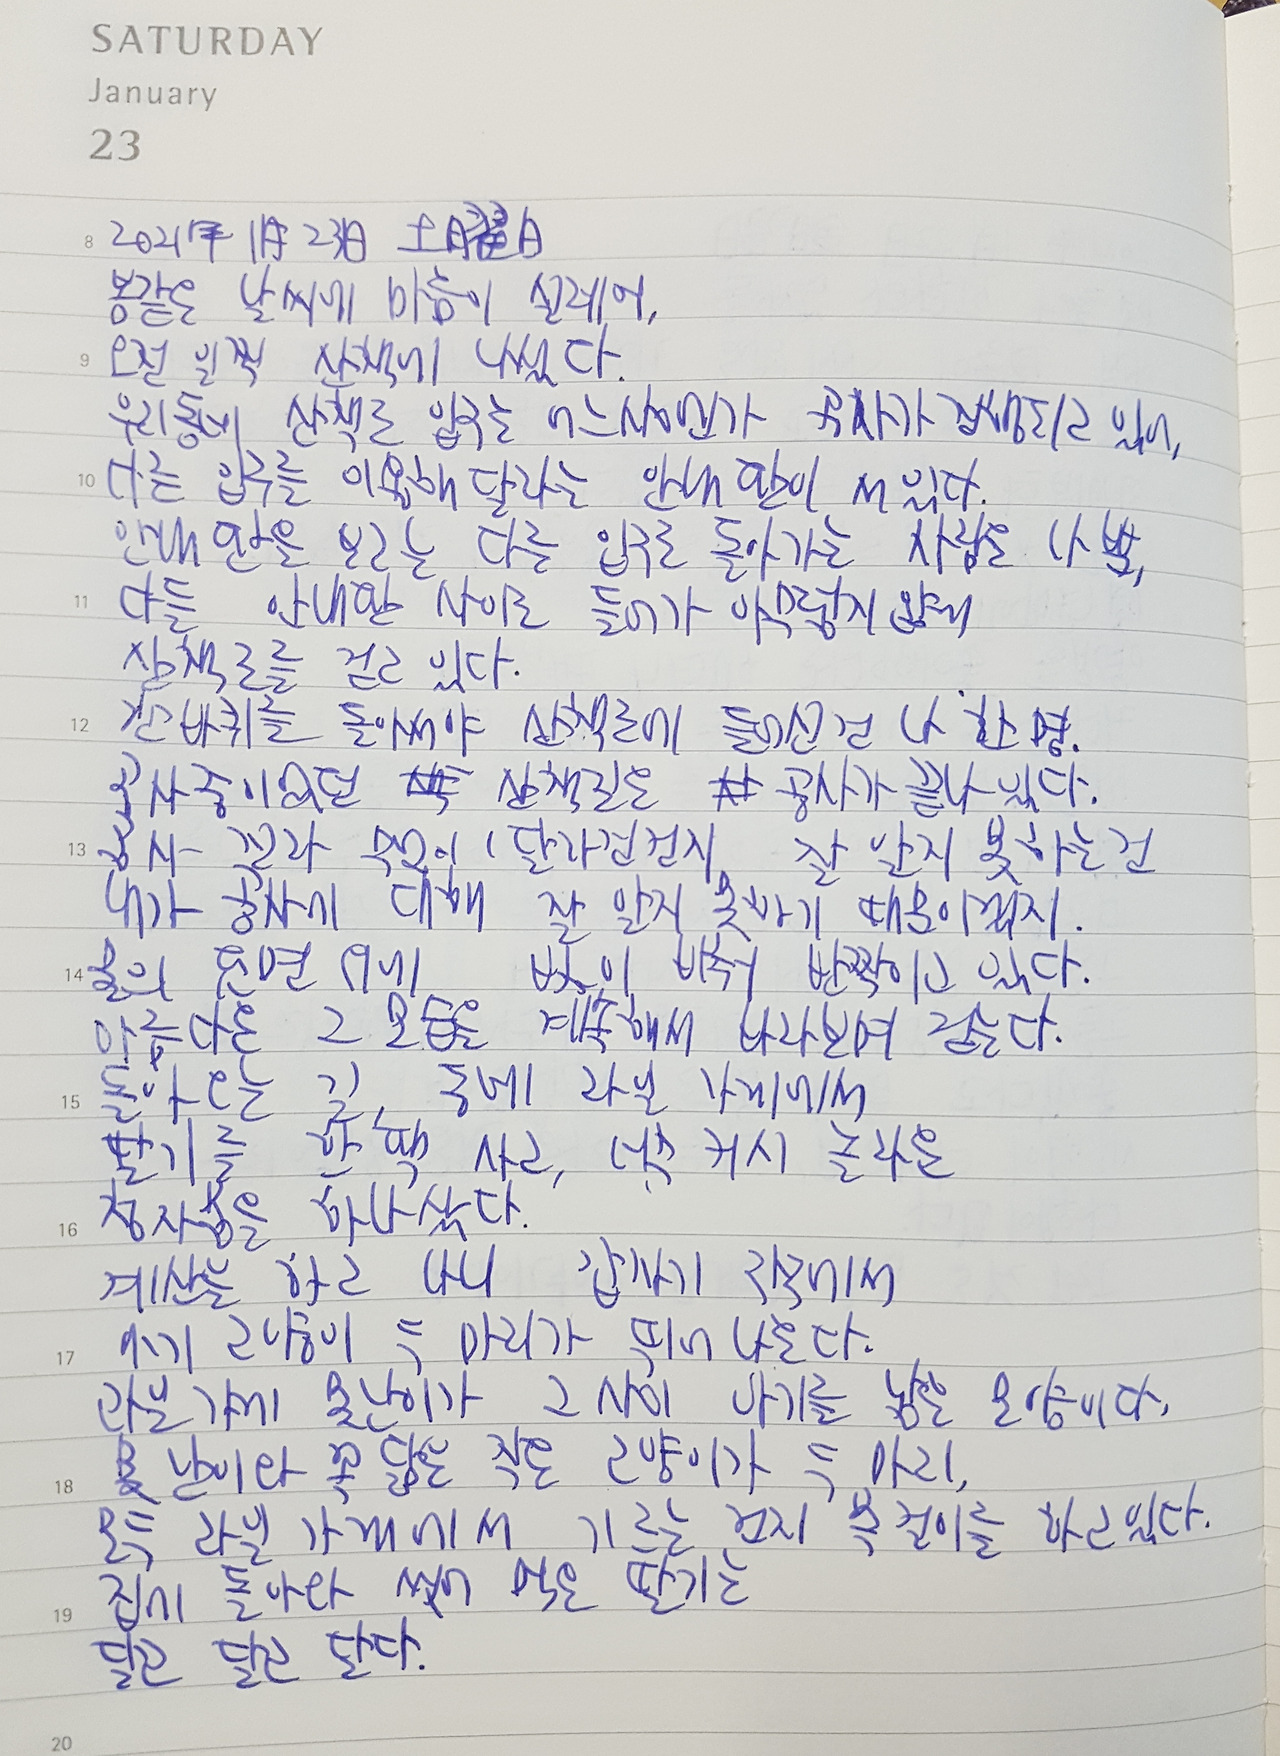 SATURDAY
January
23
8 2021年 1月 23日 土曜日
봄같은 날씨에 마음이 설레어,
9 오전 일찍 산책에 나섰다.
우리동네 산책로 입구는 어느사이엔가 공사가 진행되고 있어,
10 다른 입구를 이용해 달라는 안내판이 서 있다.
안내판을 보고는 다른 입구로 돌아가는 사람은 나 뿐,
11 다들 안내판 사이로 들어가 아무렇지 않게
산책로를 걷고 있다.
12 한바퀴를 돌아서야 산책로에 들어선건 나 한 명.
공사중이었던 산책길은 공사가 끝나 있다.
13 공사 전과 무엇이 달라진건지 잘 알지 못하는건
내가 공사에 대해 잘 알지 못하기 때문이겠지.
14 물의 표면 위에 빛이 비춰 반짝이고 있다.
아름다운 그 모습을 계속해서 바라보며 걷는다.
15 돌아오는 길, 동네 과일 가게에서
딸기를 한 팩 사고, 너무 커서 놀라운
16 감자칩을 하나 샀다.
계산을 하고 나니 갑자기 구석에서
17 아기 고양이 두 마리가 뛰어 나온다.
과일 가게 못난이가 그 사이 아기를 낳은 모양이다.
18 못난이와 꼭 닮은 작은 고양이가 두 마리,
모두 과일 가게에서 기르는 건지 목걸이를 하고 있다.
19 집에 돌아와 씻어 먹은 딸기는
달고 달고 달다.
20